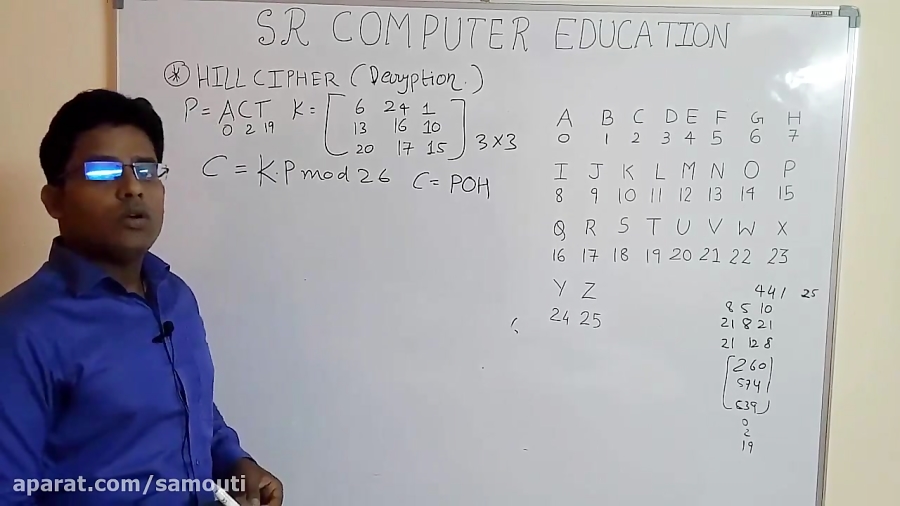 SR COMPUTER EDUCATION
* HILL CIPHER (Decryption.)
P = ACT K = [ 6 24 1
0 2 19 13 16 10
20 17 15 ] 3×3
C = K.P mod 26 C = POH
A B C D E F G H
0 1 2 3 4 5 6 7
I J K L M N O P
8 9 10 11 12 13 14 15
Q R S T U V W X
16 17 18 19 20 21 22 23
Y Z
24 25
441 25
8 5 10
21 8 21
21 12 8
[ 260
574
539 ]
0
2
19
aparat.com/samouti